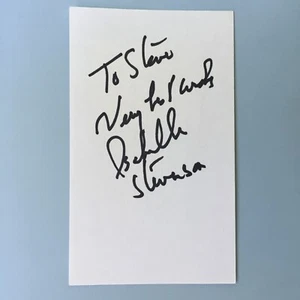 To Steve
Very best wishes
Stevenson